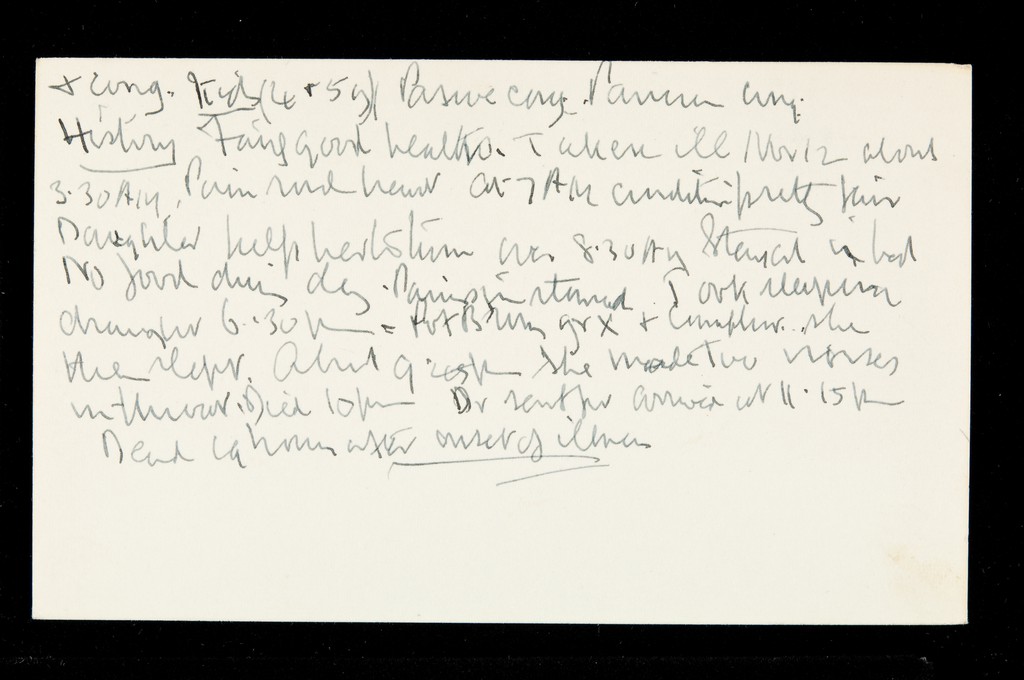 + cong. Kids (4 + 5 oz) Passive cong. Pancreas cong.
History Fairly good health. Taken ill Nov 12 about
3.30 AM. Pain round heart at 7 AM condition pretty fair
Daughter help her to turn over 8.30 AM Stayed in bed
No food during day. Pains in stomach. Took sleeping
draught 6.30 pm = Pot Brom gr x + Camphor. She
then slept. About 9 pm she made two noises
in throat. Died 10 pm Dr sent for arrived at 11.15 pm
Dead 19 hours after onset of illness